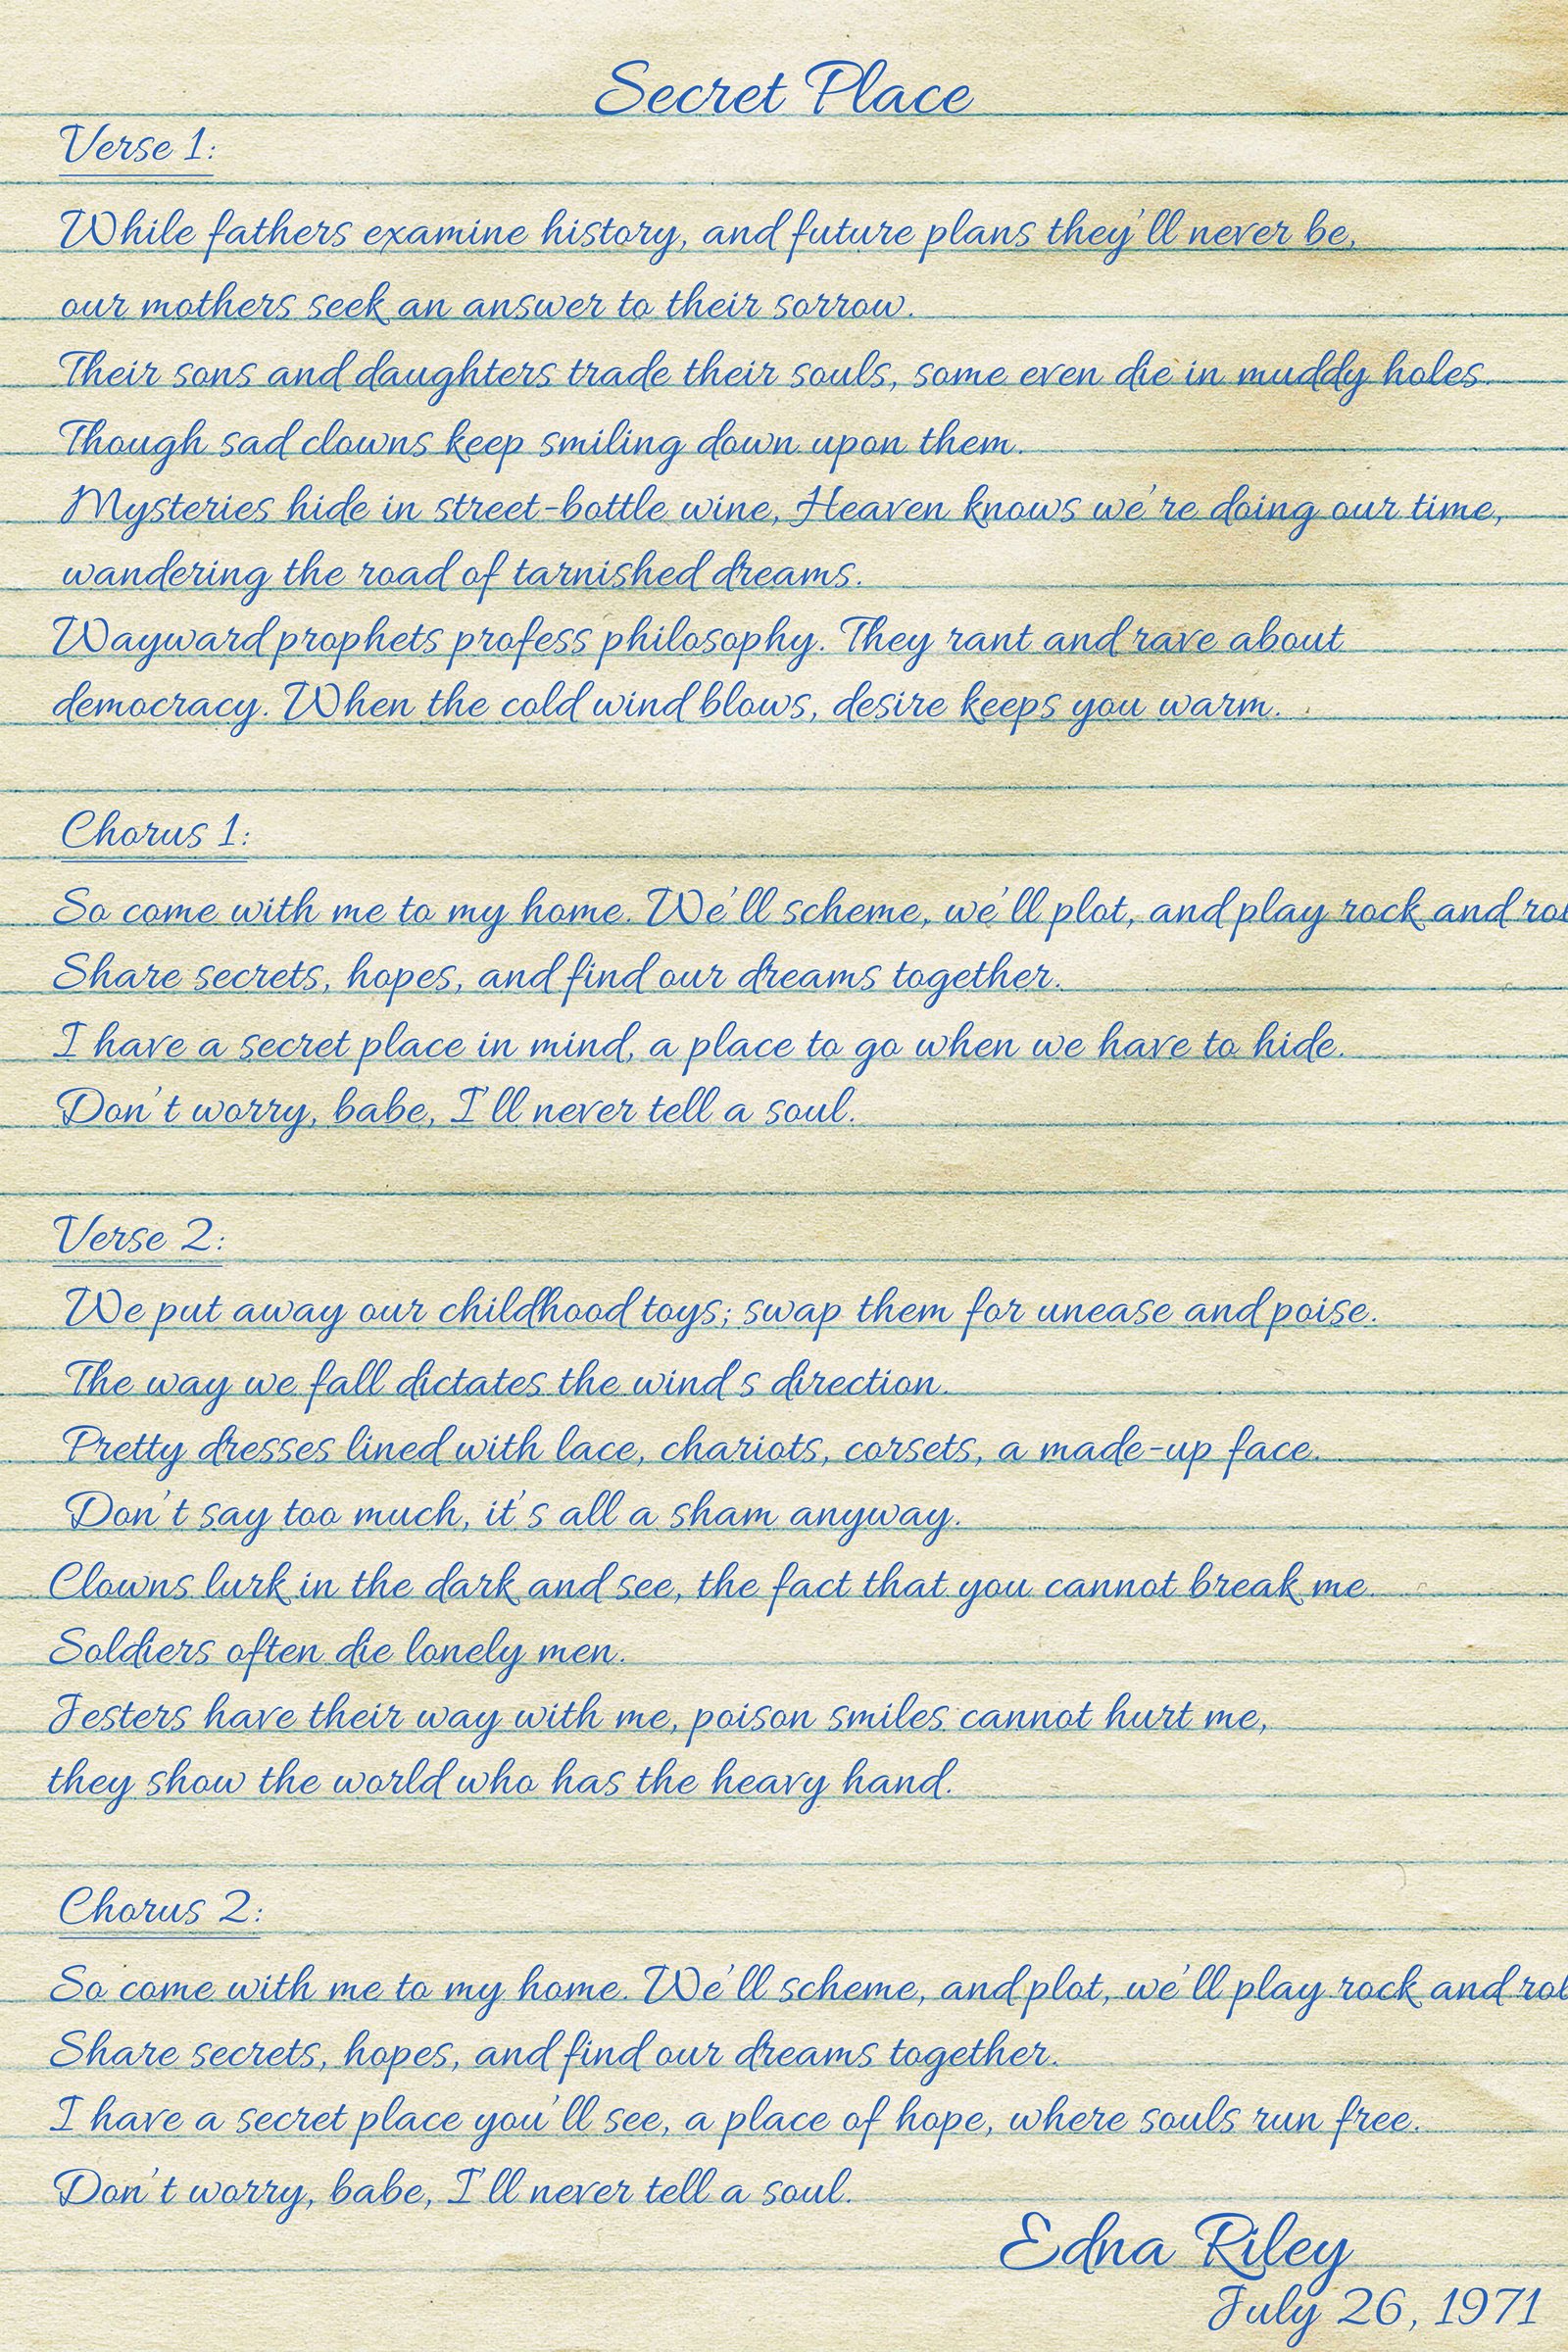 Secret Place
Verse 1:
While fathers examine history, and future plans they'll never be,
our mothers seek an answer to their sorrow.
Their sons and daughters trade their souls, some even die in muddy holes.
Though sad clowns keep smiling down upon them.
Mysteries hide in street-bottle wine, Heaven knows we're doing our time,
wandering the road of tarnished dreams.
Wayward prophets profess philosophy. They rant and rave about
democracy. When the cold wind blows, desire keeps you warm.
Chorus 1:
So come with me to my home. We'll scheme, we'll plot, and play rock and rol
Share secrets, hopes, and find our dreams together.
I have a secret place in mind, a place to go when we have to hide.
Don't worry, babe, I'll never tell a soul.
Verse 2:
We put away our childhood toys; swap them for unease and poise.
The way we fall dictates the wind's direction.
Pretty dresses lined with lace, chariots, corsets, a made-up face.
Don't say too much, it's all a sham anyway.
Clowns lurk in the dark and see, the fact that you cannot break me.
Soldiers often die lonely men.
Jesters have their way with me, poison smiles cannot hurt me,
they show the world who has the heavy hand.
Chorus 2:
So come with me to my home. We'll scheme, and plot, we'll play rock and rol
Share secrets, hopes, and find our dreams together.
I have a secret place you'll see, a place of hope, where souls run free.
Don't worry, babe, I'll never tell a soul.
Edna Riley
July 26, 1971